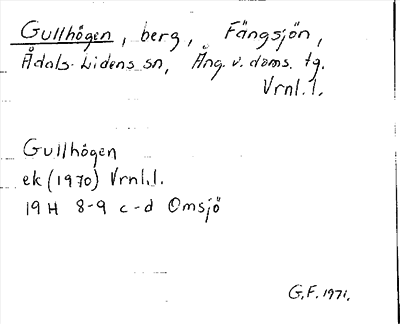 Gullhögen, berg, Fängsjön,
Ådals-Lidens sn, Ång. v. doms. tg.
Vrnl.l.
Gullhögen
ek (1970) Vrnl.l.
19H 8-9 c-d Omsjö
G.F. 1971.